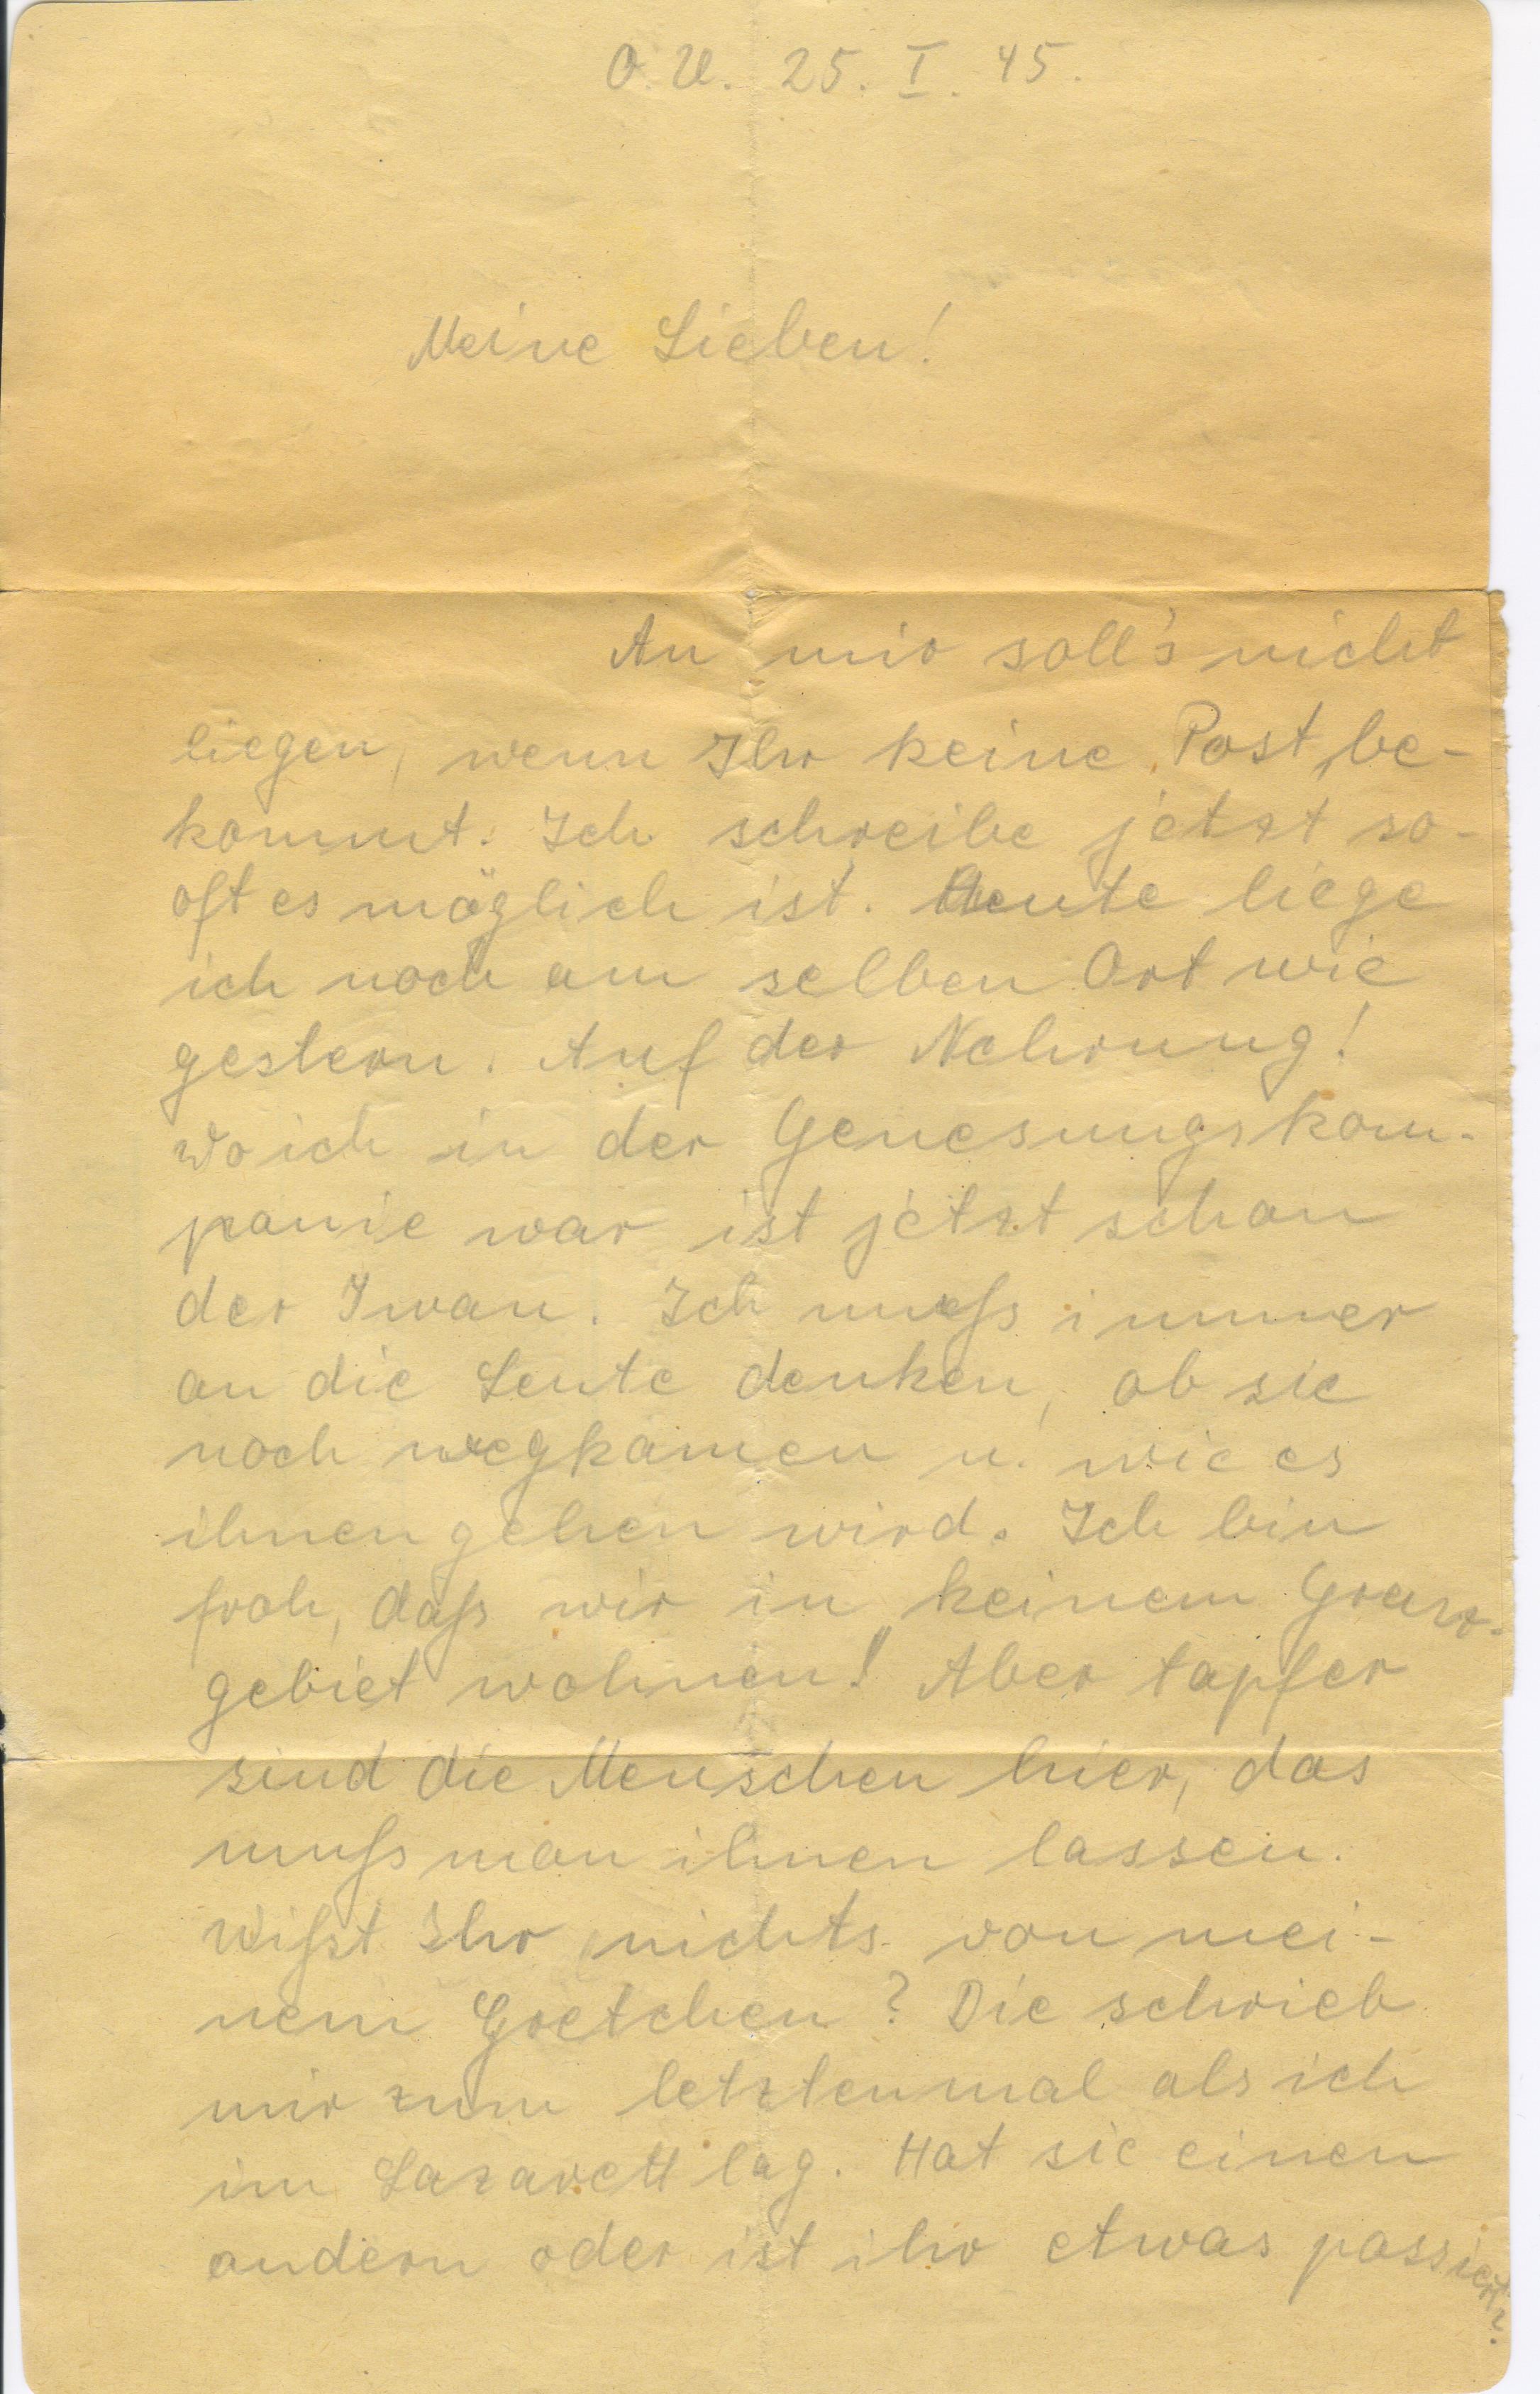 O.U. 25. I. 45.
Meine Lieben!
An mir soll's nicht
liegen, wenn Ihr keine Post be-
kommt. Ich schreibe jetzt so-
oft es möglich ist. Heute liege
ich noch am selben Ort wie
gestern. Auf der Nehrung!
Wo ich in der Genesungskom-
panie war ist jetzt schon
der Iwan. Ich muß immer
an die Leute denken, ob sie
noch wegkamen u. wie es
ihnen gehen wird. Ich bin
froh, daß wir in keinem Grenz-
gebiet wohnen! Aber tapfer
sind die Menschen hier, das
muß man ihnen lassen.
Wißt Ihr nichts von mei-
nem Gretchen? Die schrieb
mir zum letztenmal als ich
im Lazarett lag. Hat sie einen
andern oder ist ihr etwas passiert?